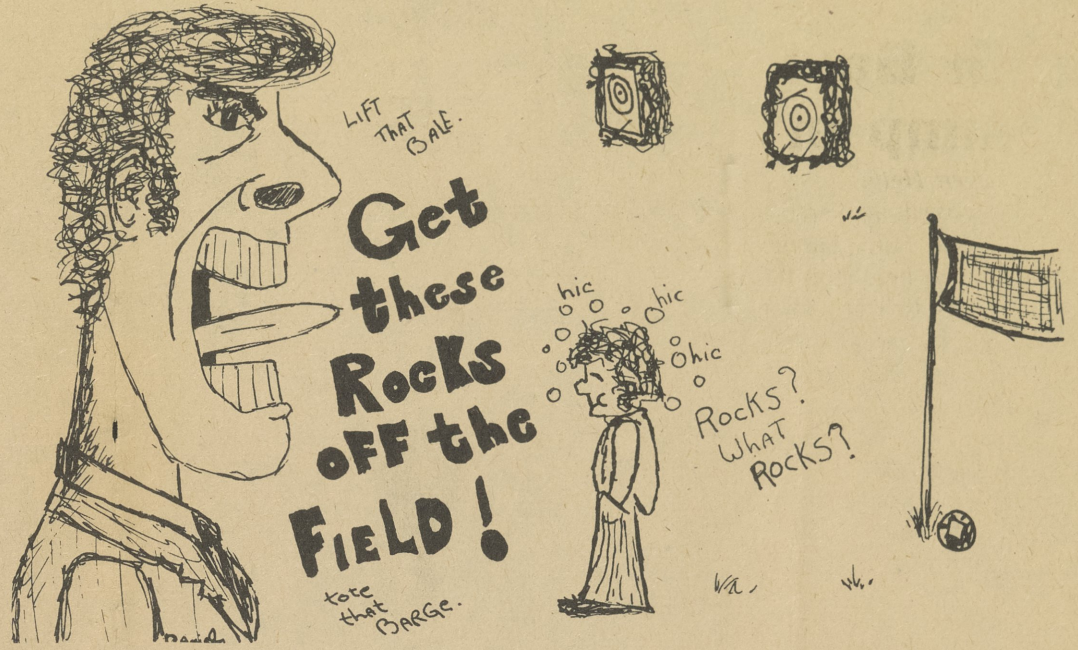 LIFT
THAT
BALE.
Get
these
Rocks
OFF the
FIELD!
tote
that
BARGE.
hic
hic
hic
ROCKS?
WHAT
ROCKS?